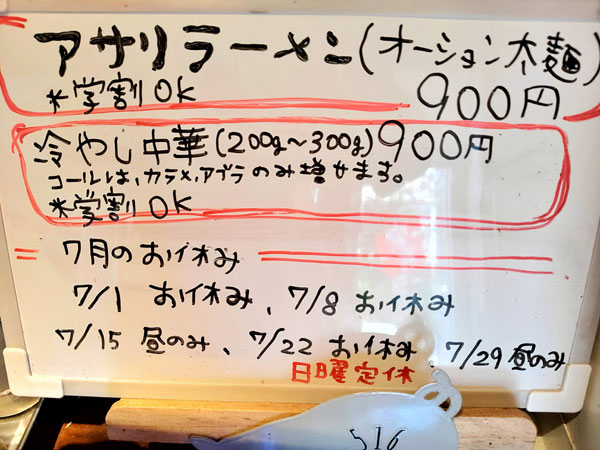 アサリラーメン(オーション太麺)
*学割OK 900円
冷やし中華(200g〜300g)900円
コールは、カラメ、アブラのみ増せます。
*学割OK
7月のお休み
7/1 お休み、7/8 お休み
7/15 昼のみ、7/22 お休み、7/29 昼のみ
日曜定休
516